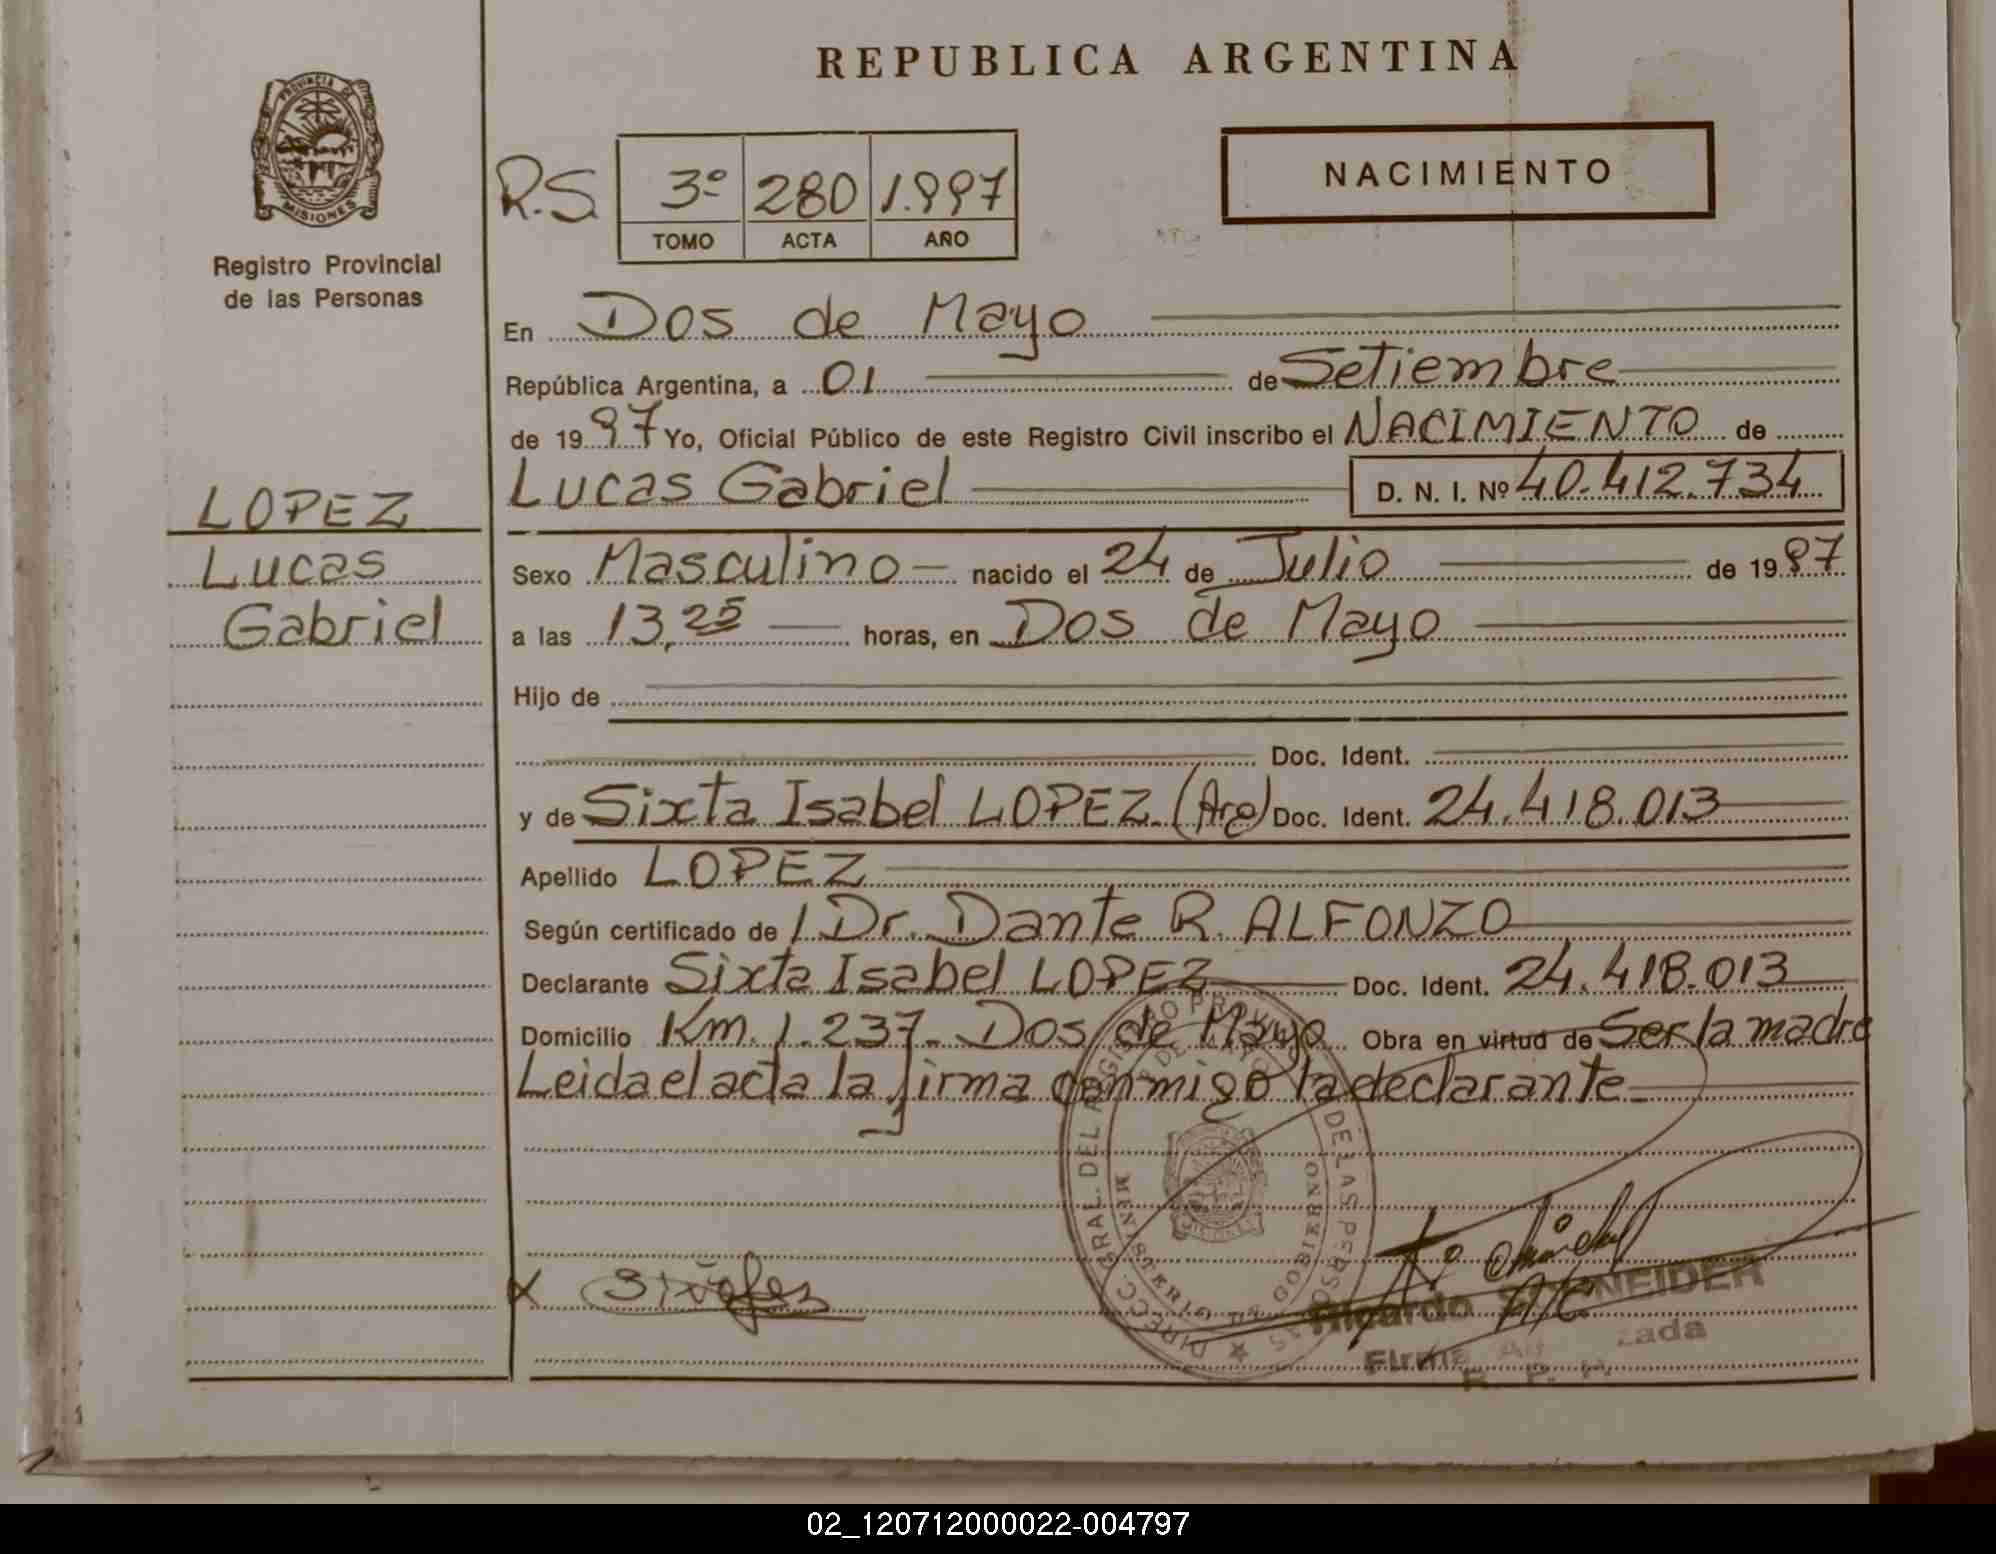 REPUBLICA ARGENTINA
PROVINCIA DE
MISIONES
Registro Provincial
de las Personas
NACIMIENTO
R.S. 3º 280 1.997
TOMO ACTA AÑO
En Dos de Mayo
República Argentina, a 01 de Setiembre
de 1997 Yo, Oficial Público de este Registro Civil inscribo el NACIMIENTO de
LOPEZ
Lucas
Gabriel
Lucas Gabriel D. N. I. Nº 40.412.734
Sexo Masculino nacido el 24 de Julio de 1997
a las 13,25 horas, en Dos de Mayo
Hijo de
Doc. Ident.
y de Sixta Isabel LOPEZ (Arg) Doc. Ident. 24.418.013
Apellido LOPEZ
Según certificado de / Dr. Dante R. ALFONZO
Declarante Sixta Isabel LOPEZ Doc. Ident. 24.418.013
Domicilio Km. 1.237 - Dos de Mayo Obra en virtud de Ser la madre
Leida el acta la firma conmigo la declarante
DIRECC. GRAL. DEL REGISTRO PROV. DE LAS PERSONAS
MINISTERIO DE GOBIERNO
MISIONES
Ricardo SCHNEIDER
Firma Autorizada
R. P. P.
02_120712000022-004797